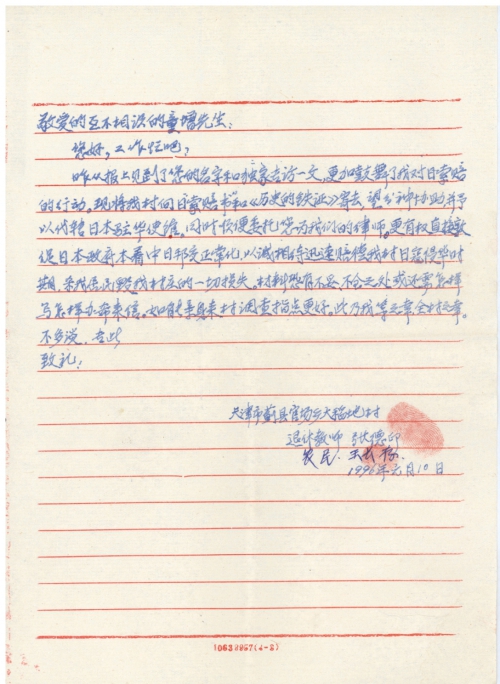 敬爱的互不相识的童增先生：
您好，工作忙吧，
昨从报上见到了您的名字和独家专访一文，更加鼓舞了我对日索赔
的行动。现将我村向日索赔书和《历史的铁证》寄去，望 协助，并予
以代转日本驻华使馆，同时 委托您为我们的律师。更有权直接敦
促日本政府本着中日邦交正常化，以诚相待迅速赔偿我村日寇侵华时
期 我村庄的一切损失。材料如有不妥、不合之处或还需怎样
写怎样办希来信。如能亲身来村调查指点更好。此乃我 幸，全村之幸。
不多谈，至此
致礼！
天津市蓟县官场乡大稻地村
退休教师 张德
农民 王
1996年元月10日
1063 9967(4-2)